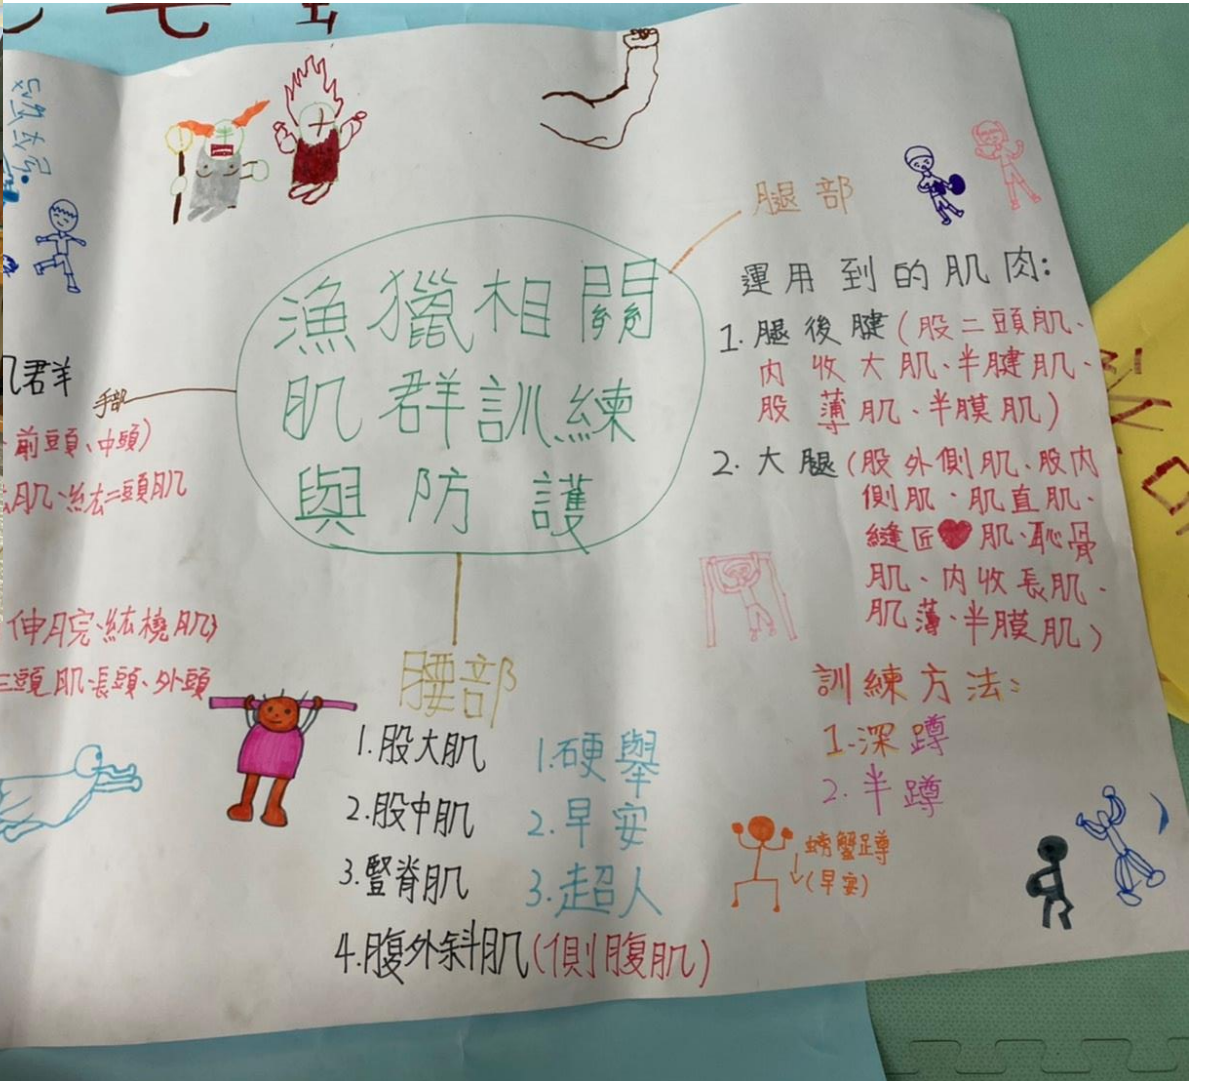 漁獵相關
肌群訓練
與防護
腿部
運用到的肌肉:
1. 腿後腱(股二頭肌、
內收大肌、半腱肌、
股薄肌、半膜肌)
2. 大腿(股外側肌、股內
側肌、肌直肌、
縫匠❤肌、恥骨
肌、內收長肌、
肌薄、半膜肌)
訓練方法:
1.深蹲
2.半蹲
螃蟹蹲
(早安)
腰部
1.股大肌
2.股中肌
3.豎脊肌
4.腹外斜肌(側腹肌)
1.硬舉
2.早安
3.超人
手部
肌群
前頭、中頭)
肌、肱二頭肌
伸腕、肱橈肌)
三頭肌長頭、外頭